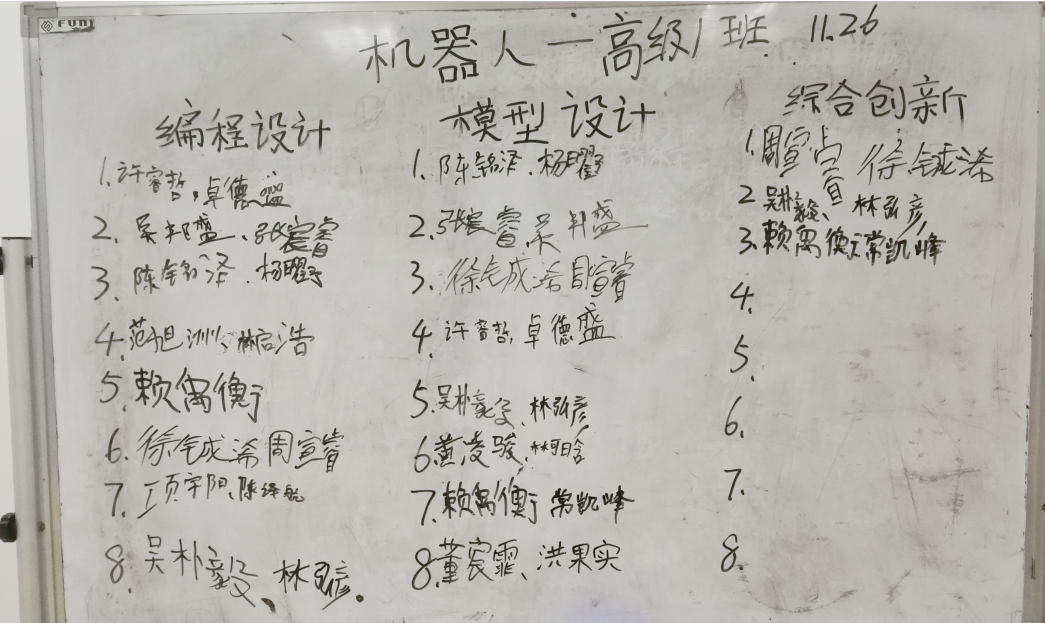 FUNJ
机器人一高级1班 11.26
编程设计
1.许睿哲,卓德盛
2.吴邦盛、张宸睿
3.陈铭泽.杨曜
4.范旭洲、林启浩
5.赖禹衡
6.徐铖浠周宣睿
7.项宇阳、陈泽航
8.吴朴毅、林弘彦。
模型设计
1.陈铭泽.杨曜
2.张宸睿吴邦盛
3.徐铖浠周宣睿
4.许睿哲,卓德盛
5.吴朴毅、林弘彦
6.黄凌骏、林晗
7.赖禹衡 常凯峰
8.董宸霏、洪果实
综合创新
1.周宣睿 徐铖浠
2.吴朴毅、林弘彦
3.赖禹衡 常凯峰
4.
5.
6.
7.
8.